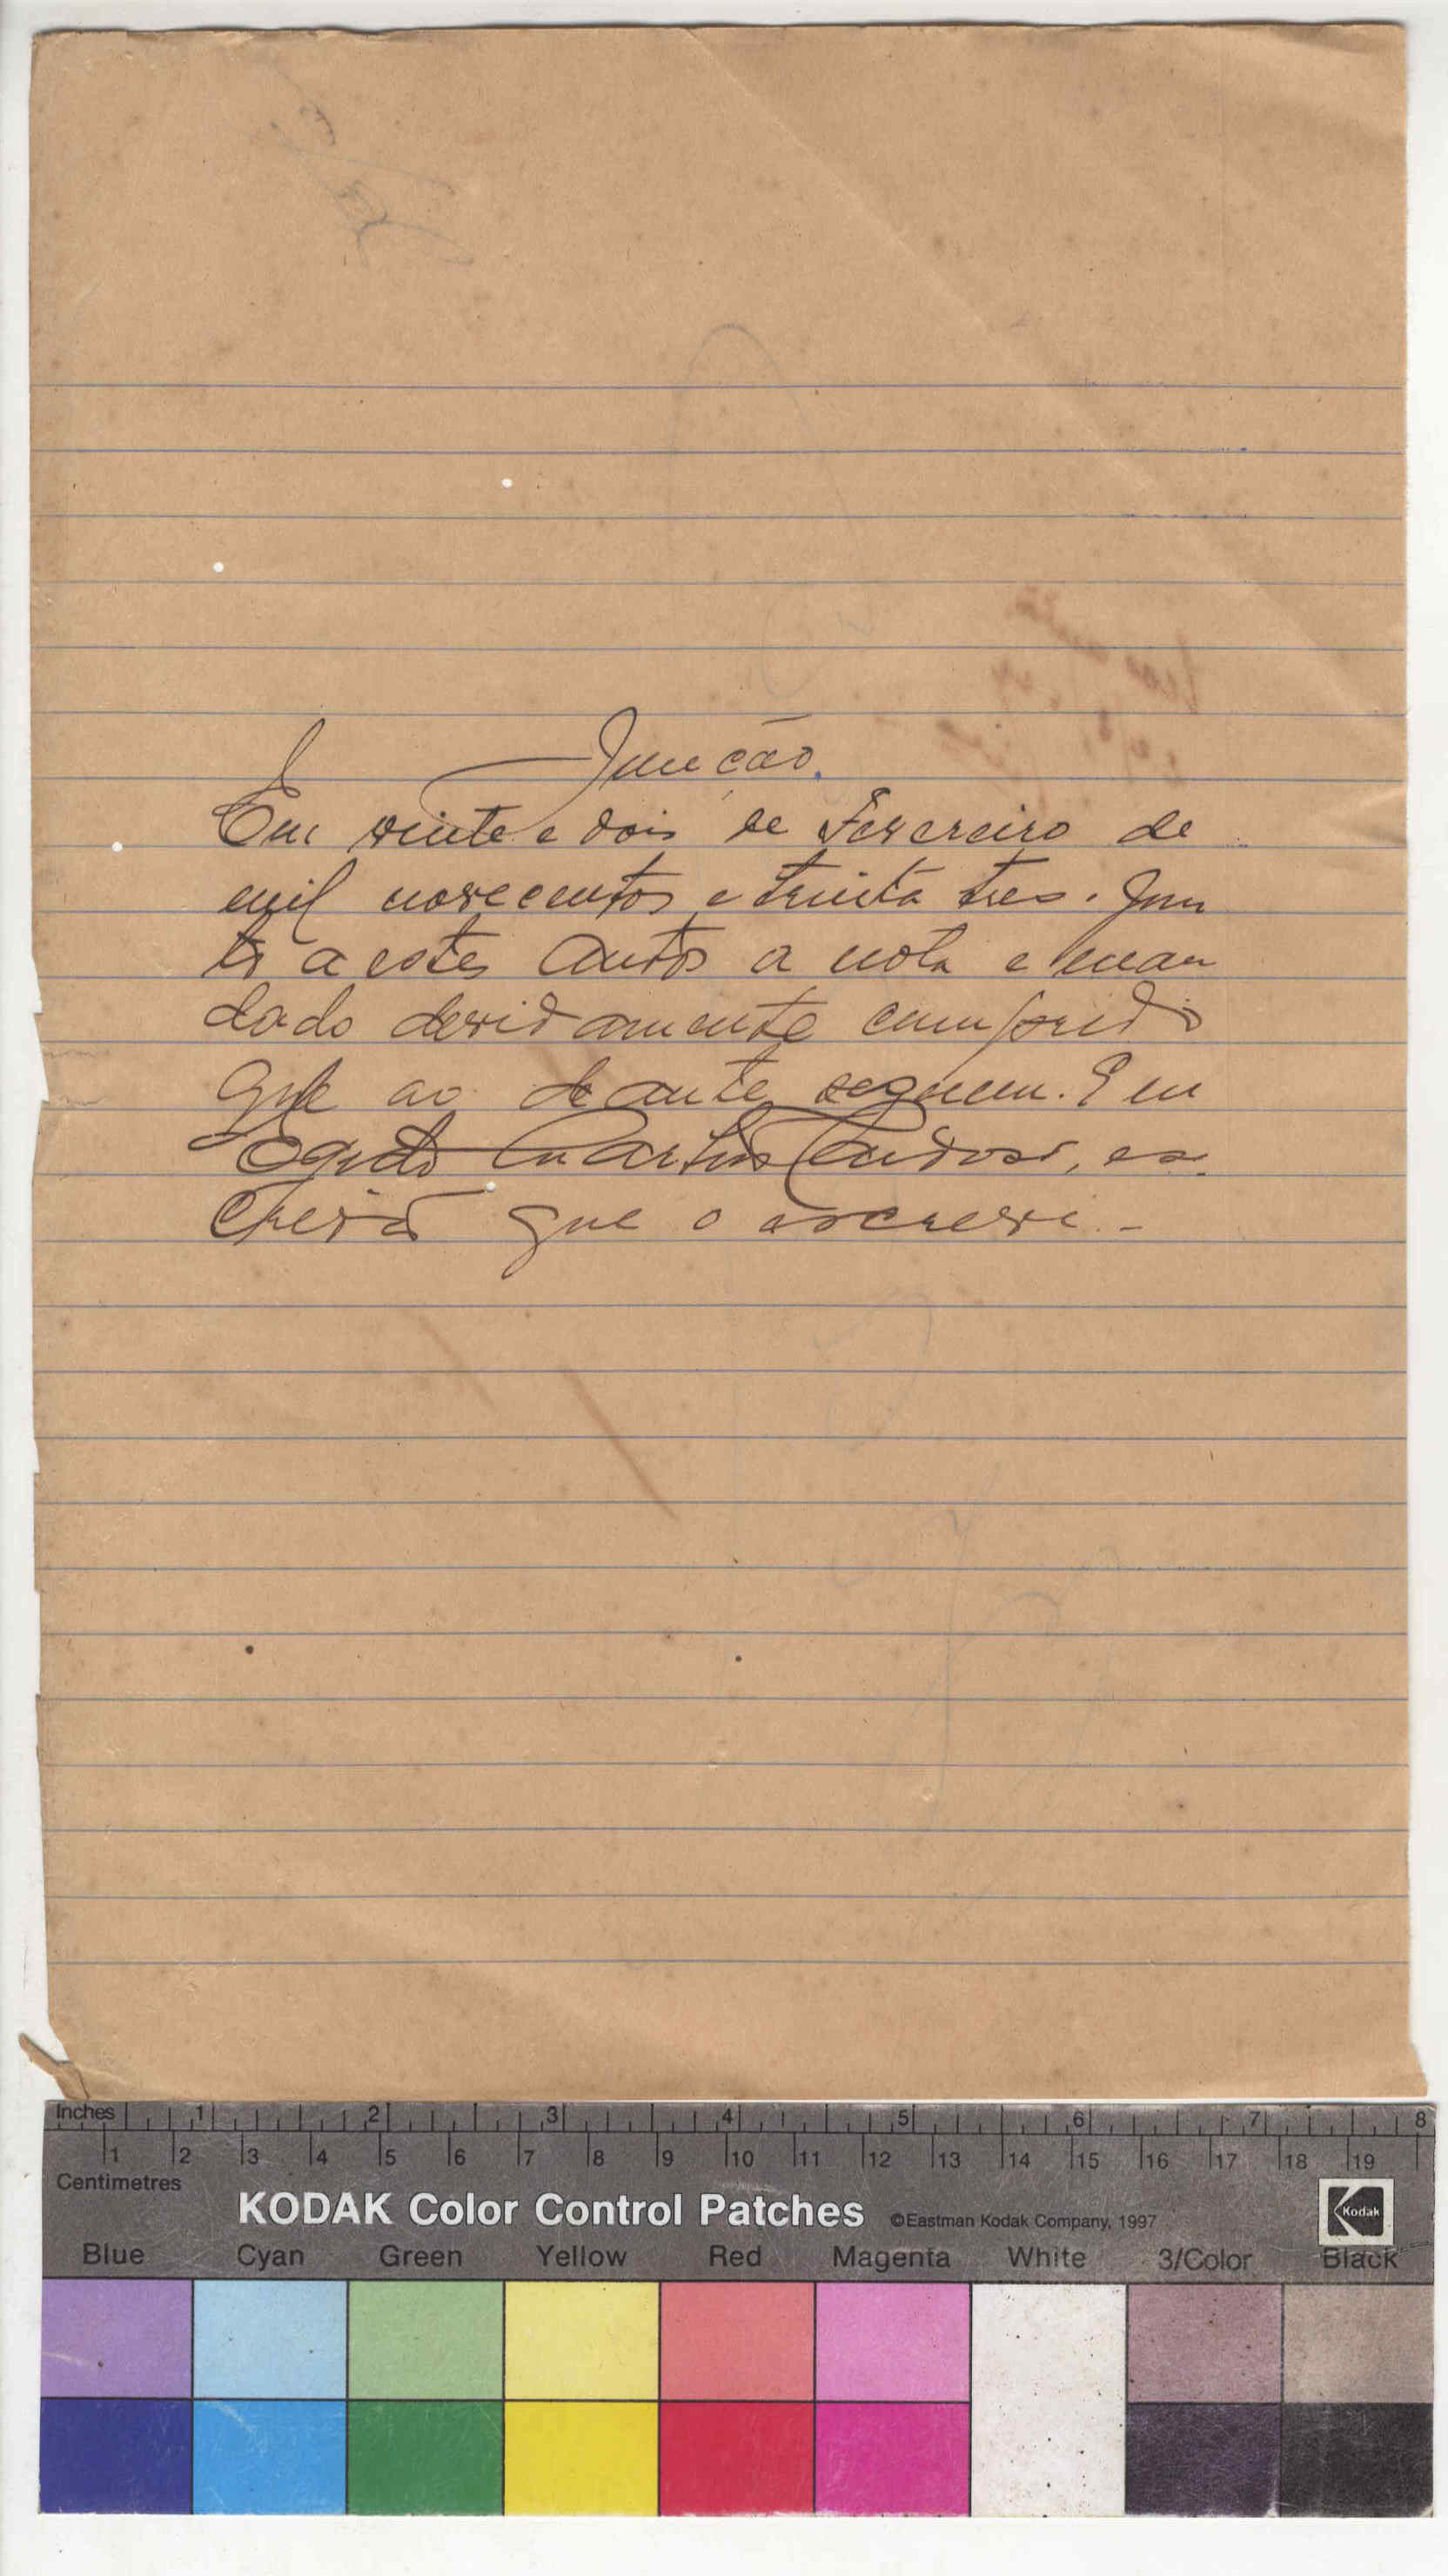 Juncção.
Em vinte e dois de Fevereiro de
mil novecentos e trinta tres. Jun
to a estes autos a nota e man
dado devidamente cumprido
que ao deante seguem. Eu
Egidio Martins Cardoso, es-
crivão que o escrevi. -
Inches 1 2 3 4 5 6 7 8
1 2 3 4 5 6 7 8 9 10 11 12 13 14 15 16 17 18 19
Centimetres
KODAK Color Control Patches ©Eastman Kodak Company, 1997 Kodak
Blue Cyan Green Yellow Red Magenta White 3/Color Black